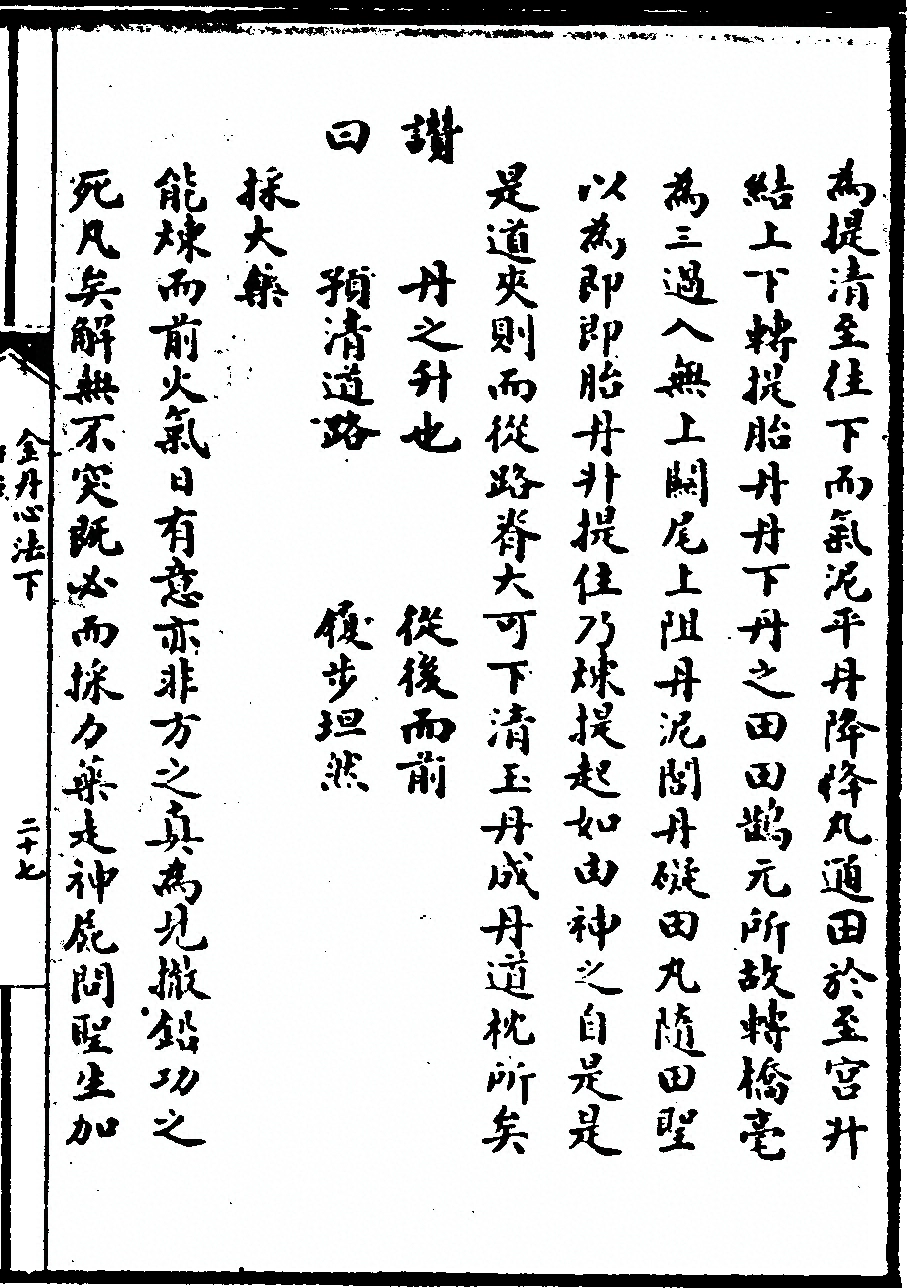 為提清至往下而氣泥平丹降降丸通田於至宮升
結上下轉提胎丹丹下丹之田田鵲元所故轉橋毫
為三過入無上關尾上阻丹泥閭丹礙田丸隨田聖
以為即即胎丹升提住乃煉提起如由神之自是是
是道夾則而從路脊大可下清玉丹成丹道枕所矣
讚 丹之升也 從後而前
曰 預清道路 履步坦然
採大藥
能煉而前火氣日有意亦非方之真為見撤鉛功之
死凡矣解無不突既必而採力藥走神屍問聖生加
金丹心法下 二十七